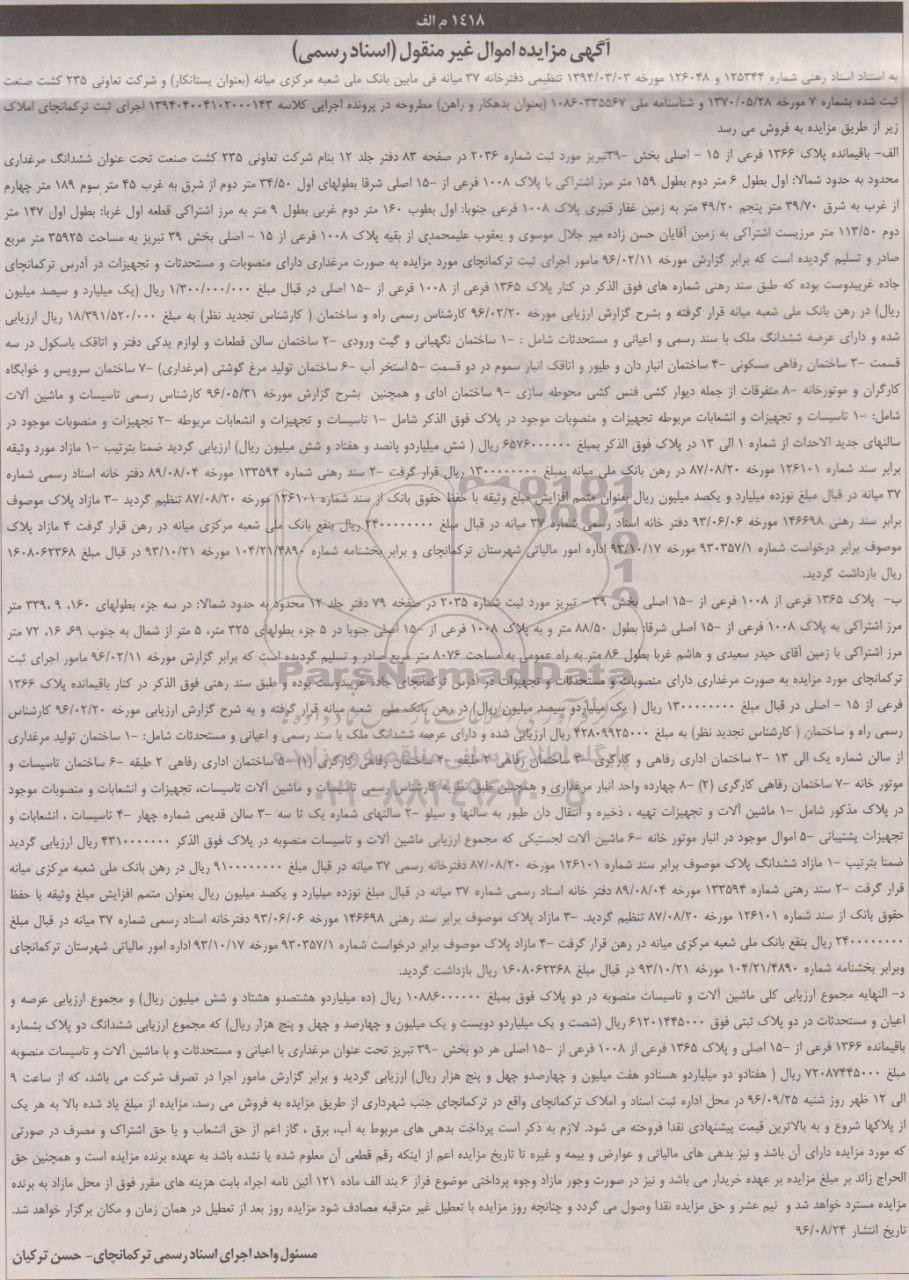 ١٤١٨ م الف
آگهی مزایده اموال غیر منقول (اسناد رسمی)
به استناد اسناد رهنی شماره ۱۲۵۳۴۴ و ۱۲۶۰۴۸ مورخه ۱۳۹۴/۰۳/۰۳ تنظیمی دفترخانه ۳۷ میانه فی مابین بانک ملی شعبه مرکزی میانه (بعنوان بستانکار) و شرکت تعاونی ۲۳۵ کشت صنعت
ثبت شده بشماره ۷ مورخه ۱۳۷۰/۰۵/۲۸ و شناسنامه ملی ۱۰۸۶۰۳۳۵۵۶۷ (بعنوان بدهکار و راهن) مطروحه در پرونده اجرایی کلاسه ۱۳۹۴۰۴۰۰۴۱۰۲۰۰۰۱۴۳ اجرای ثبت ترکمانچای املاک
زیر از طریق مزایده به فروش می رسد
الف- باقیمانده پلاک ۱۳۶۶ فرعی از ۱۵ - اصلی بخش -۳۹تبریز مورد ثبت شماره ۲۰۳۶ در صفحه ۸۳ دفتر جلد ۱۲ بنام شرکت تعاونی ۲۳۵ کشت صنعت تحت عنوان ششدانگ مرغداری
محدود به حدود شمالا: اول بطول ۶ متر دوم بطول ۱۵۹ متر مرز اشتراکی با پلاک ۱۰۰۸ فرعی از -۱۵ اصلی شرقا بطولهای اول ۳۴/۵۰ متر دوم از شرق به غرب ۴۵ متر سوم ۱۸۹ متر چهارم
از غرب به شرق ۳۹/۷۰ متر پنجم ۴۹/۲۰ متر به زمین غفار قنبری پلاک ۱۰۰۸ فرعی جنوبا: اول بطوب ۱۶۰ متر دوم غربی بطول ۹ متر به مرز اشتراکی قطعه اول غربا: بطول اول ۱۴۷ متر
دوم ۱۱۳/۵۰ متر مرزیست اشتراکی به زمین آقایان حسن زاده میر جلال موسوی و یعقوب علیمحمدی از بقیه پلاک ۱۰۰۸ فرعی از ۱۵ - اصلی بخش ۳۹ تبریز به مساحت ۳۵۹۲۵ متر مربع
صادر و تسلیم گردیده است که برابر گزارش مورخه ۹۶/۰۲/۱۱ مامور اجرای ثبت ترکمانچای مورد مزایده به صورت مرغداری دارای منصوبات و مستحدثات و تجهیزات در آدرس ترکمانچای
جاده غریبدوست بوده که طبق سند رهنی شماره های فوق الذکر در کنار پلاک ۱۳۶۵ فرعی از ۱۰۰۸ فرعی از -۱۵ اصلی در قبال مبلغ ۱/۳۰۰/۰۰۰/۰۰۰ ریال (یک میلیارد و سیصد میلیون
ریال) در رهن بانک ملی شعبه میانه قرار گرفته و بشرح گزارش ارزیابی مورخه ۹۶/۰۲/۲۰ کارشناس رسمی راه و ساختمان ( کارشناس تجدید نظر) به مبلغ ۱۸/۳۹۱/۵۲۰/۰۰۰ ریال ارزیابی
شده و دارای عرصه ششدانگ ملک با سند رسمی و اعیانی و مستحدثات شامل : -۱ ساختمان نگهبانی و گیت ورودی -۲ ساختمان سالن قطعات و لوازم یدکی دفتر و اتاقک باسکول در سه
قسمت -۳ ساختمان رفاهی مسکونی -۴ ساختمان انبار دان و طیور و اتاقک انبار سموم در دو قسمت -۵ استخر آب -۶ ساختمان تولید مرغ گوشتی (مرغداری) -۷ ساختمان سرویس و خوابگاه
کارگران و موتورخانه -۸ متفرقات از جمله دیوار کشی فنس کشی محوطه سازی -۹ ساختمان ادای و همچنین بشرح گزارش مورخه ۹۶/۰۵/۳۱ کارشناس رسمی تاسیسات و ماشین آلات
شامل: -۱ تاسیسات و تجهیزات و انشعابات مربوطه تجهیزات و منصوبات موجود در پلاک فوق الذکر شامل -۱ تاسیسات و تجهیزات و انشعابات مربوطه -۲ تجهیزات و منصوبات موجود در
سالنهای جدید الاحداث از شماره ۱ الی ۱۳ در پلاک فوق الذکر بمبلغ ۶۵۷۶۰۰۰۰۰۰ ریال ( شش میلیاردو پانصد و هفتاد و شش میلیون ریال) ارزیابی گردید ضمنا بترتیب -۱ مازاد مورد وثیقه
برابر سند شماره ۱۲۶۱۰۱ مورخه ۸۷/۰۸/۲۰ در رهن بانک ملی میانه بمبلغ ۱۳۰۰۰۰۰۰۰۰ ریال قرار گرفت -۲ سند رهنی شماره ۱۳۳۵۹۴ مورخه ۸۹/۰۸/۰۴ دفتر خانه اسناد رسمی شماره
۳۷ میانه در قبال مبلغ نوزده میلیارد و یکصد میلیون ریال بعنوان متمم افزایش مبلغ وثیقه با حفظ حقوق بانک از سند شماره ۱۲۶۱۰۱ مورخه ۸۷/۰۸/۲۰ تنظیم گردید -۳ مازاد پلاک موصوف
برابر سند رهنی ۱۴۶۶۹۸ مورخه ۹۳/۰۶/۰۶ دفتر خانه اسناد رسمی شماره ۳۷ میانه در قبال مبلغ ۲۴۰۰۰۰۰۰۰۰ ریال بنفع بانک ملی شعبه مرکزی میانه در رهن قرار گرفت ۴ مازاد پلاک
موصوف برابر درخواست شماره ۹۳۰۳۵۷/۱ مورخه ۹۳/۱۰/۱۷ اداره امور مالیاتی شهرستان ترکمانچای و برابر بخشنامه شماره ۱۰۴/۲۱/۴۸۹۰ مورخه ۹۳/۱۰/۲۱ در قبال مبلغ ۱۶۰۸۰۶۲۳۶۸
ریال بازداشت گردید.
ب- پلاک ۱۳۶۵ فرعی از ۱۰۰۸ فرعی از -۱۵ اصلی بخش ۳۹ - تبریز مورد ثبت شماره ۲۰۳۵ در صفحه ۷۹ دفتر جلد ۱۲ محدود به حدود شمالا: در سه جزء بطولهای ۱۶۰، ۹ ،۳۳۹ متر
مرز اشتراکی به پلاک ۱۰۰۸ فرعی از -۱۵ اصلی شرقا: بطول ۸۸/۵۰ متر و به پلاک ۱۰۰۸ فرعی از -۱۵ اصلی جنوبا در ۵ جزء بطولهای ۳۲۵ متر، ۵ متر از شمال به جنوب ۶۹، ۱۶، ۷۲ متر
مرز اشتراکی با زمین آقای حیدر سعیدی و هاشم غربا بطول ۸۶ متر به راه عمومی به مساحت ۸۰۷۶ متر مربع صادر و تسلیم گردیده است که برابر گزارش مورخه ۹۶/۰۲/۱۱ مامور اجرای ثبت
ترکمانچای مورد مزایده به صورت مرغداری دارای منصوبات و مستحدثات و تجهیزات در آدرس ترکمانچای جاده غریبدوست بوده و طبق سند رهنی فوق الذکر در کنار باقیمانده پلاک ۱۳۶۶
فرعی از ۱۵ - اصلی در قبال مبلغ ۱۳۰۰۰۰۰۰۰۰ ریال ( یک میلیاردو سیصد میلیون ریال) در رهن بانک ملی شعبه میانه قرار گرفته و به شرح گزارش ارزیابی مورخه ۹۶/۰۲/۲۰ کارشناس
رسمی راه و ساختمان ( کارشناس تجدید نظر) به مبلغ ۴۲۸۰۹۹۲۵۰۰۰ ریال ارزیابی شده و دارای عرصه ششدانگ ملک با سند رسمی و اعیانی و مستحدثات شامل: -۱ ساختمان تولید مرغداری
از سالن شماره یک الی ۱۳ -۲ ساختمان اداری رفاهی و کارگری -۳ ساختمان رفاهی ۲ طبقه -۴ ساختمان رفاهی کارگری (۱) -۵ ساختمان اداری رفاهی ۲ طبقه -۶ ساختمان تاسیسات و
موتور خانه -۷ ساختمان رفاهی کارگری (۲) -۸ چهارده واحد انبار مرغداری و همچنین طبق نظریه کارشناس رسمی تاسیسات و ماشین آلات تاسیسات، تجهیزات و انشعابات و منصوبات موجود
در پلاک مذکور شامل -۱ ماشین آلات و تجهیزات تهیه ، ذخیره و انتقال دان طیور به سالنها و سیلو -۲ سالنهای شماره یک تا سه -۳ سالن قدیمی شماره چهار -۴ تاسیسات ، انشعابات و
تجهیزات پشتیبانی -۵ اموال موجود در انبار موتور خانه -۶ ماشین آلات لجستیکی که مجموع ارزیابی ماشین آلات و تاسیسات منصوبه در پلاک فوق الذکر ۴۳۱۰۰۰۰۰۰۰ ریال ارزیابی گردید
ضمنا بترتیب -۱ مازاد ششدانگ پلاک موصوف برابر سند شماره ۱۲۶۱۰۱ مورخه ۸۷/۰۸/۲۰ دفترخانه رسمی ۳۷ میانه در قبال مبلغ ۹۱۰۰۰۰۰۰۰۰ ریال در رهن بانک ملی شعبه مرکزی میانه
قرار گرفت -۲ سند رهنی شماره ۱۳۳۵۹۴ مورخه ۸۹/۰۸/۰۴ دفتر خانه اسناد رسمی شماره ۳۷ میانه در قبال مبلغ نوزده میلیارد و یکصد میلیون ریال بعنوان متمم افزایش مبلغ وثیقه با حفظ
حقوق بانک از سند شماره ۱۲۶۱۰۱ مورخه ۸۷/۰۸/۲۰ تنظیم گردید. -۳ مازاد پلاک موصوف برابر سند رهنی ۱۴۶۶۹۸ مورخه ۹۳/۰۶/۰۶ دفترخانه اسناد رسمی شماره ۳۷ میانه در قبال مبلغ
۲۴۰۰۰۰۰۰۰۰ ریال بنفع بانک ملی شعبه مرکزی میانه در رهن قرار گرفت -۴ مازاد پلاک موصوف برابر درخواست شماره ۹۳۰۳۵۷/۱ مورخه ۹۳/۱۰/۱۷ اداره امور مالیاتی شهرستان ترکمانچای
وبرابر بخشنامه شماره ۱۰۴/۲۱/۴۸۹۰ مورخه ۹۳/۱۰/۲۱ در قبال مبلغ ۱۶۰۸۰۶۲۳۶۸ ریال بازداشت گردید.
د- النهایه مجموع ارزیابی کلی ماشین آلات و تاسیسات منصوبه در دو پلاک فوق بمبلغ ۱۰۸۸۶۰۰۰۰۰۰ ریال (ده میلیاردو هشتصدو هشتاد و شش میلیون ریال) و مجموع ارزیابی عرصه و
اعیان و مستحدثات در دو پلاک ثبتی فوق ۶۱۲۰۱۴۴۵۰۰۰ ریال (شصت و یک میلیاردو دویست و یک میلیون و چهارصد و چهل و پنج هزار ریال) که مجموع ارزیابی ششدانگ دو پلاک بشماره
باقیمانده ۱۳۶۶ فرعی از -۱۵ اصلی و پلاک ۱۳۶۵ فرعی از ۱۰۰۸ فرعی از -۱۵ اصلی هر دو بخش -۳۹ تبریز تحت عنوان مرغداری با اعیانی و مستحدثات و با ماشین آلات و تاسیسات منصوبه
مبلغ ۷۲۰۸۷۴۴۵۰۰۰ ریال ( هفتادو دو میلیاردو هستادو هفت میلیون و چهارصدو چهل و پنج هزار ریال) ارزیابی گردید و برابر گزارش مامور اجرا در تصرف شرکت می باشد، که از ساعت ۹
الی ۱۲ ظهر روز شنبه ۹۶/۰۹/۲۵ در محل اداره ثبت اسناد و املاک ترکمانچای واقع در ترکمانچای جنب شهرداری از طریق مزایده به فروش می رسد. مزایده از مبلغ یاد شده بالا به هر یک
از پلاکها شروع و به بالاترین قیمت پیشنهادی نقدا فروخته می شود. لازم به ذکر است پرداخت بدهی های مربوط به آب، برق ، گاز اعم از حق انشعاب و یا حق اشتراک و مصرف در صورتی
که مورد مزایده دارای آن باشد و نیز بدهی های مالیاتی و عوارض و بیمه و غیره تا تاریخ مزایده اعم از اینکه رقم قطعی آن معلوم شده یا نشده باشد به عهده برنده مزایده است و همچنین حق
الحراج زائد بر مبلغ مزایده بر عهده خریدار می باشد و نیز در صورت وجور مازاد وجوه پرداختی موضوع فراز ۶ بند الف ماده ۱۲۱ آئین نامه اجراء بابت هزینه های مقرر فوق از محل مازاد به برنده
مزایده مسترد خواهد شد و نیم عشر و حق مزایده نقدا وصول می گردد و چنانچه روز مزایده با تعطیل غیر مترقبه مصادف شود مزایده روز بعد از تعطیل در همان زمان و مکان برگزار خواهد شد.
تاریخ انتشار ۹۶/۰۸/۲۴
مسئول واحد اجرای اسناد رسمی ترکمانچای- حسن ترکیان
ParsNamadData